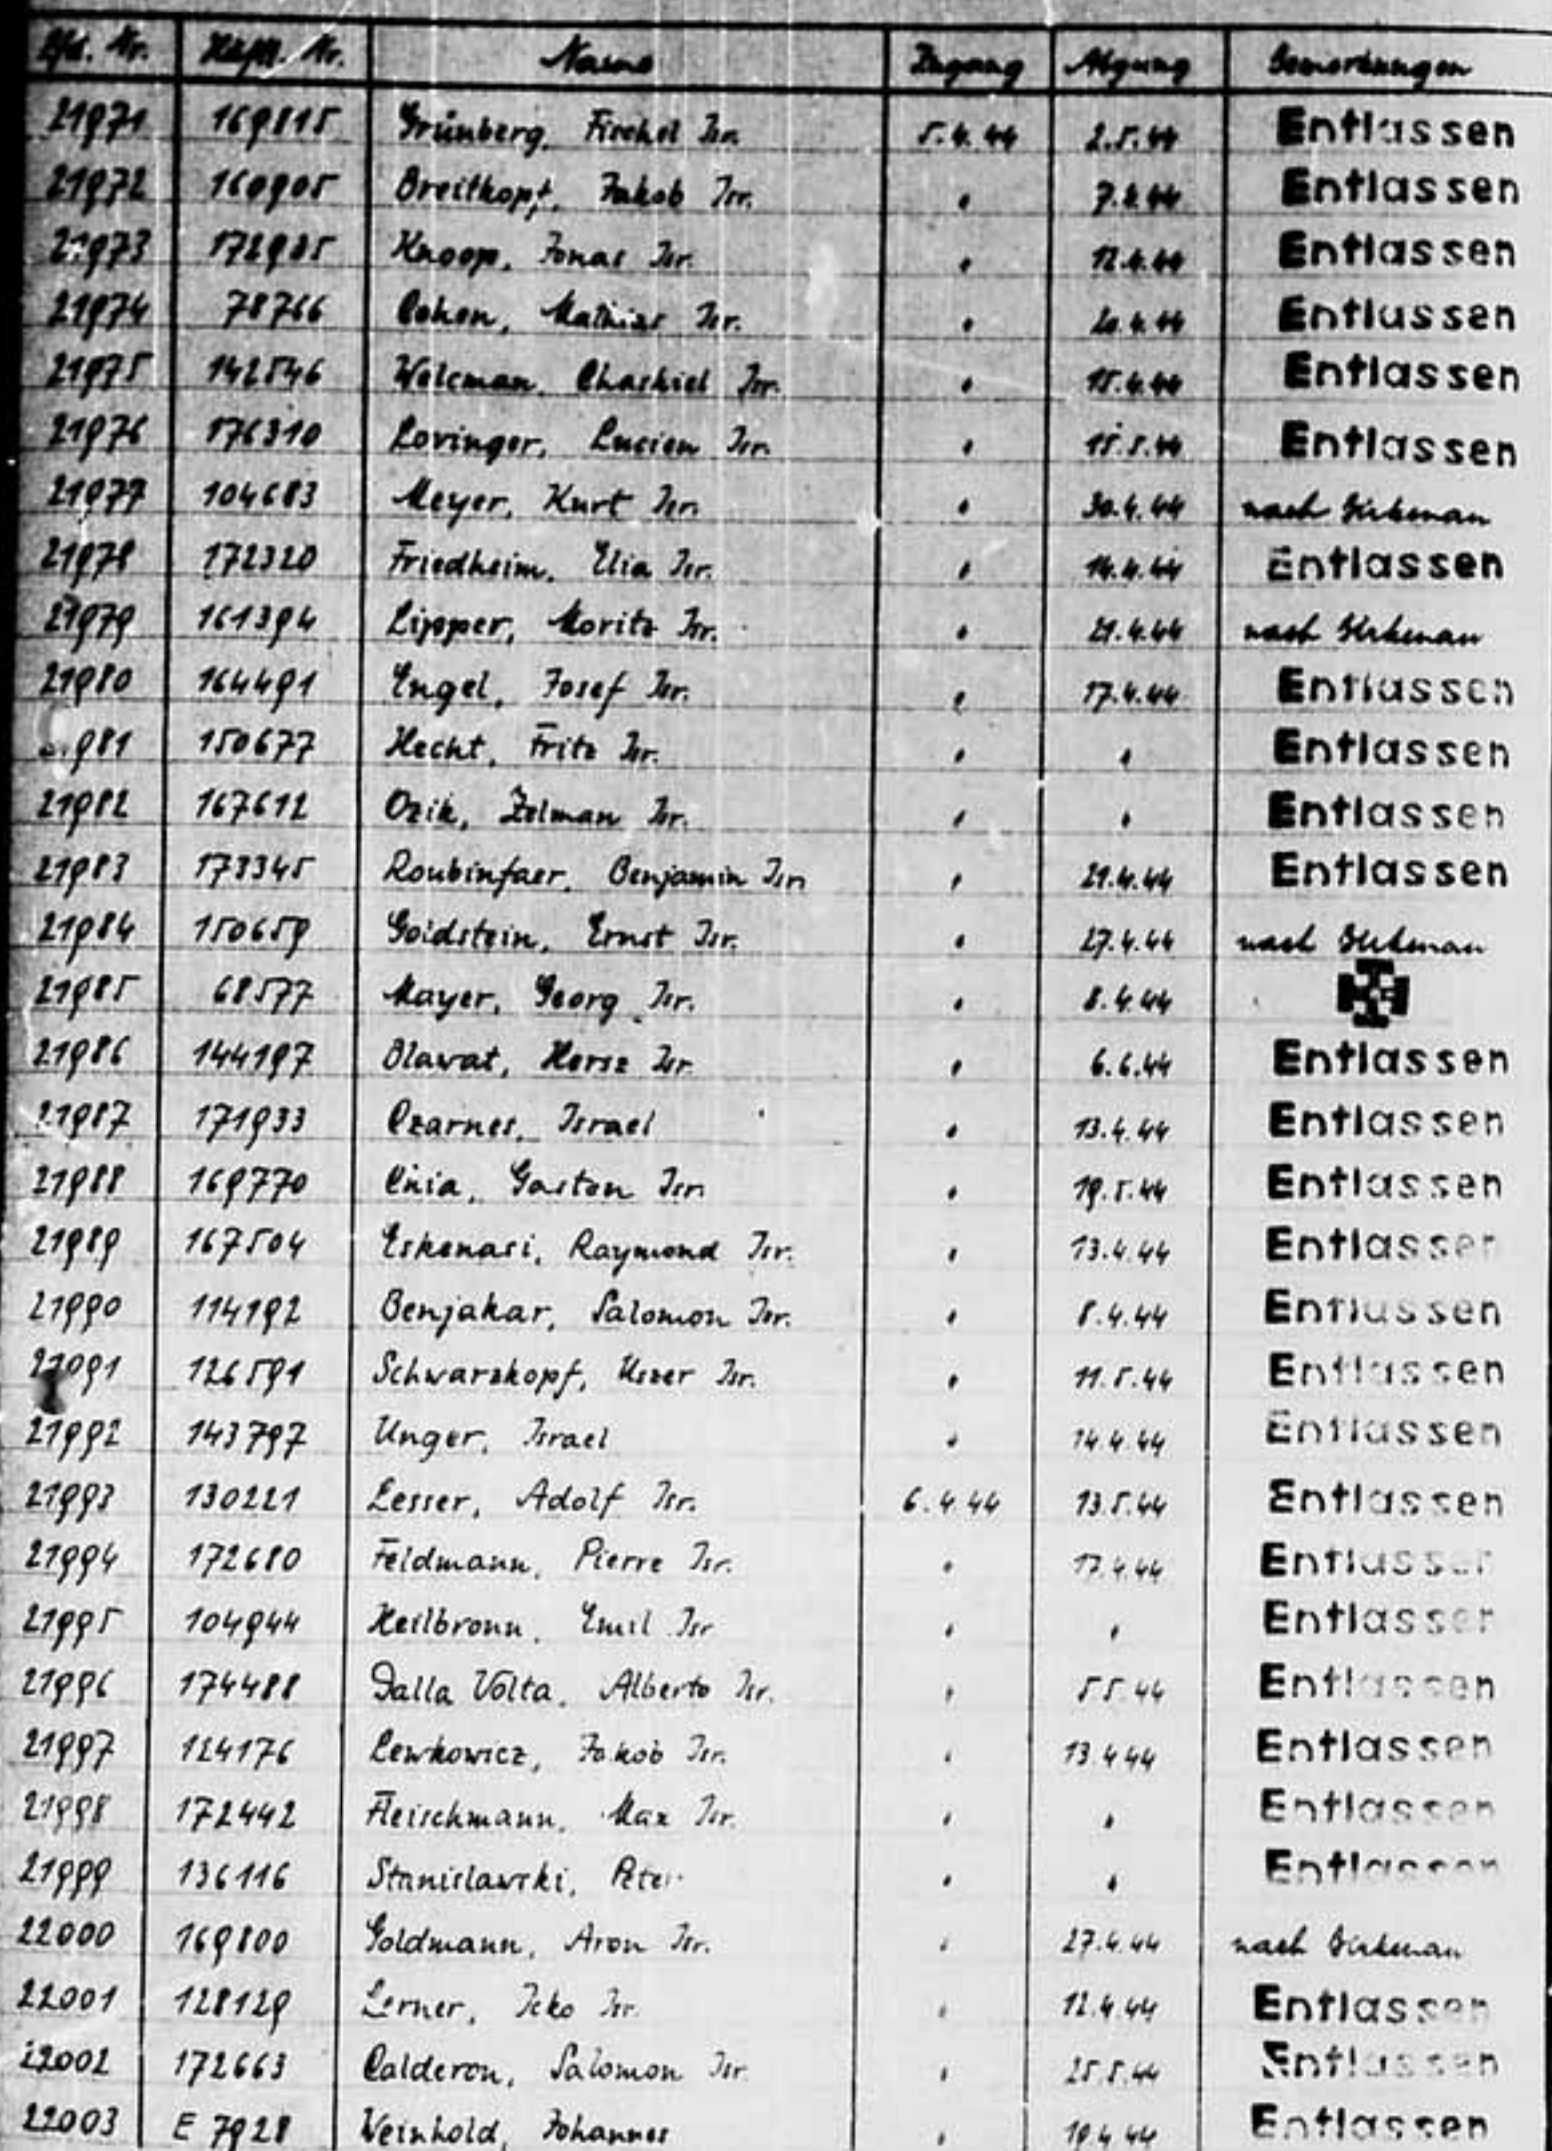 Lfd. Nr. Häftl. Nr. Name Zugang Abgang Bemerkungen
21971 169815 Grünberg, Fischel Isr. 5.4.44 2.5.44 Entlassen
21972 160905 Breitkopf, Jakob Isr. " 7.4.44 Entlassen
21973 172985 Knoop, Jonas Isr. " 12.4.44 Entlassen
21974 78766 Cohen, Mathias Isr. " 20.4.44 Entlassen
21975 142546 Welcman, Chaskiel Isr. " 15.4.44 Entlassen
21976 176310 Lovinger, Lucien Isr. " 15.5.44 Entlassen
21977 104683 Meyer, Kurt Isr. " 30.4.44 nach Birkenau
21978 172320 Friedheim, Elia Isr. " 14.4.44 Entlassen
21979 161394 Lipper, Moritz Isr. " 21.4.44 nach Birkenau
21980 164491 Engel, Josef Isr. " 17.4.44 Entlassen
21981 150677 Hecht, Fritz Isr. " " Entlassen
21982 167612 Ozik, Zelman Isr. " " Entlassen
21983 173345 Roubinfaer, Benjamin Isr. " 21.4.44 Entlassen
21984 150659 Goldstein, Ernst Isr. " 27.4.44 nach Birkenau
21985 68577 Mayer, Georg Isr. " 8.4.44
21986 144197 Olawat, Hersz Isr. " 6.6.44 Entlassen
21987 171933 Czarnes, Israel " 13.4.44 Entlassen
21988 169770 Gaston Isr. " 19.5.44 Entlassen
21989 167504 Eskenasi, Raymond Isr. " 13.4.44 Entlassen
21990 114192 Benjakar, Salomon Isr. " 8.4.44 Entlassen
21991 126591 Schwarzkopf, Uszer Isr. " 11.5.44 Entlassen
21992 143797 Unger, Israel " 14.4.44 Entlassen
21993 130221 Lesser, Adolf Isr. 6.4.44 13.5.44 Entlassen
21994 172680 Feldmann, Pierre Isr. " 17.4.44 Entlassen
21995 104944 Heilbronn, Emil Isr " " Entlassen
21996 174488 Dalla Volta, Alberto Isr. " 5.5.44 Entlassen
21997 124176 Lewkowicz, Jakob Isr. " 13.4.44 Entlassen
21998 172442 Fleischmann, Max Isr. " " Entlassen
21999 136116 Stanislawski, Peter " " Entlassen
22000 169800 Goldmann, Aron Isr. " 27.4.44 nach Birkenau
22001 128129 Lerner, Icko Isr. " 12.4.44 Entlassen
22002 172663 Calderon, Salomon Isr " 25.5.44 Entlassen
22003 E 7928 Weinhold, Johannes " 19.4.44 Entlassen